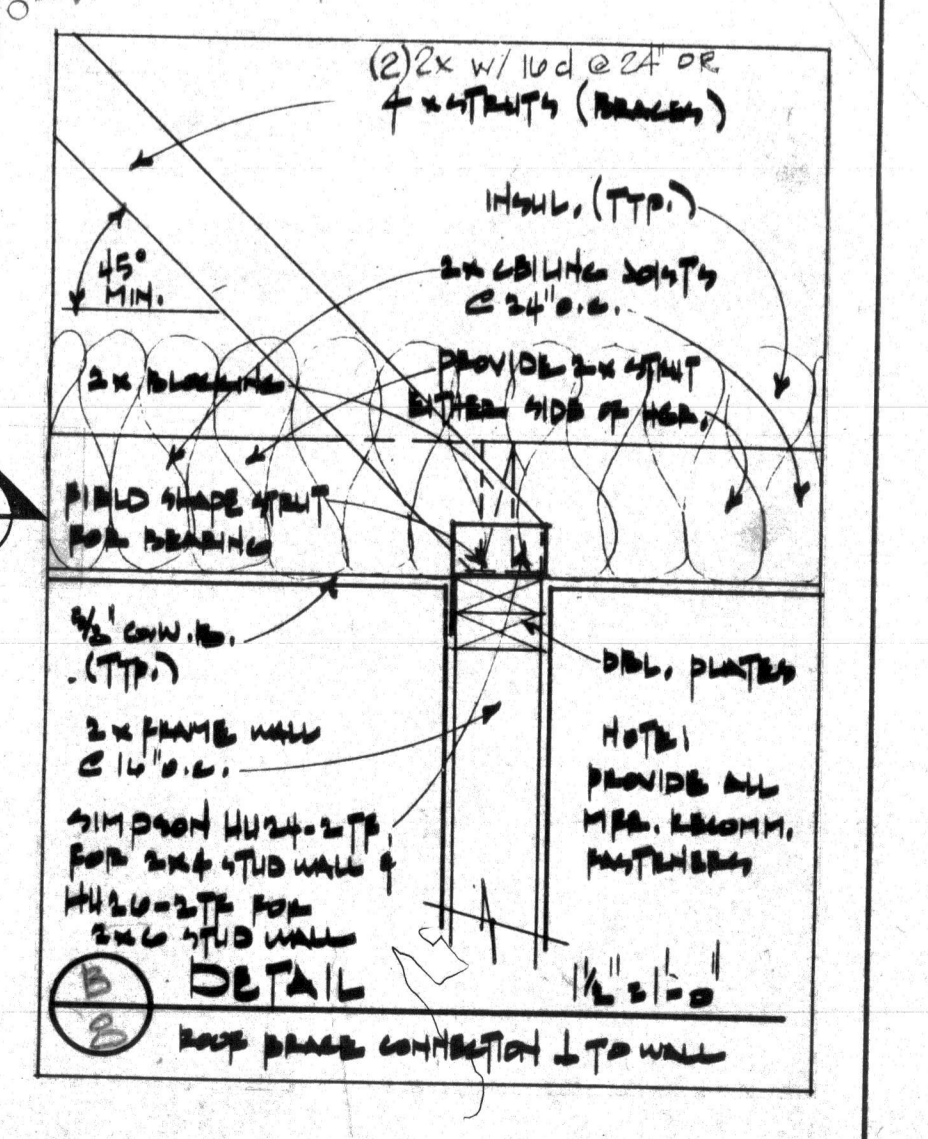 (2) 2x w/ 16d @ 24" OR
4 x STRUTS (BRACES)
INSUL. (TYP.)
45°
MIN.
2x CEILING JOISTS
@ 24" O.C.
2x BLOCKING
PROVIDE 2x STRUT
EITHER SIDE OF HGR.
FIELD SHAPE STRUT
FOR BEARING
GYP. BD.
(TYP.)
DBL. PLATES
2x FRAME WALL
@ 16" O.C.
NOTE:
PROVIDE ALL
MFR. RECOMM.
FASTENERS
SIMPSON HU24-2TF
FOR 2x4 STUD WALL &
HU26-2TF FOR
2x6 STUD WALL
B
8
DETAIL
1 1/2" = 1'-0"
ROOF BRACE CONNECTION ⊥ TO WALL